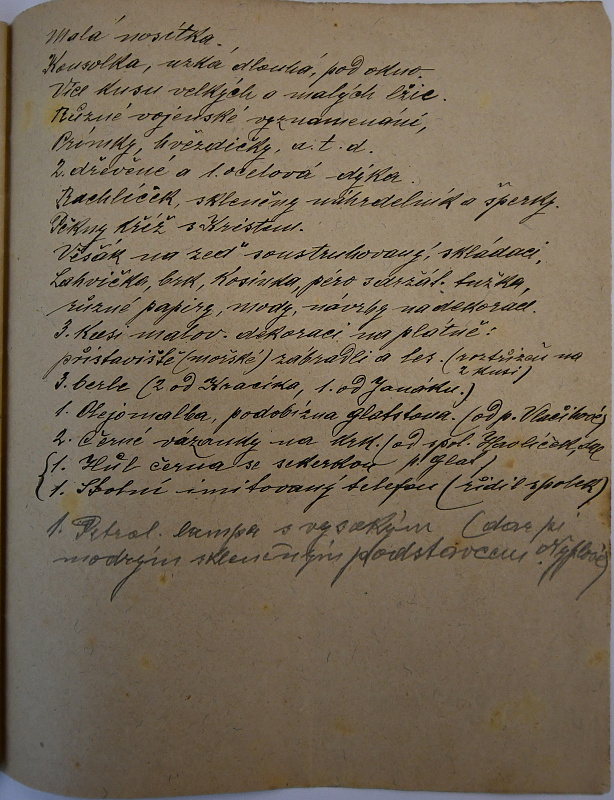 Malá nosítka.
Konsolka, uzká dlouhá, pod okno.
Více kusu velkých a malých lžic.
Různé vojenské vyznamenání,
Prýmky, hvězdičky, a.t.d.
2. dřevěné a 1. ocelová dýka.
Rachlíček, skleněný náhrdelník a šperky.
Pěkný kříž s Kristem.
Věšák na zeď soustruhovaný, skládací,
Lahvička, brk, Kósinka, péro saržát. tužka,
různé papíry, mody, návrhy na dekorac.
3. Kusi malov. dekorací na plátně:
přístaviště (mořské) zábradlí a les. (roztřižen na
2 kusi)
3. berle (2 od Kracíka, 1. od Janáků.)
1. Olejomalba, podobizna Glatstona. (od p.
2. Černé vázanky na krk. (od spol.
1. Hůl černá se sekerkou p. Glat)
1. Stolní imitovaný telefon (řídil spolek)
1. Petrol. lampa s vysokým (dar pí
modrým skleněným podstavcem